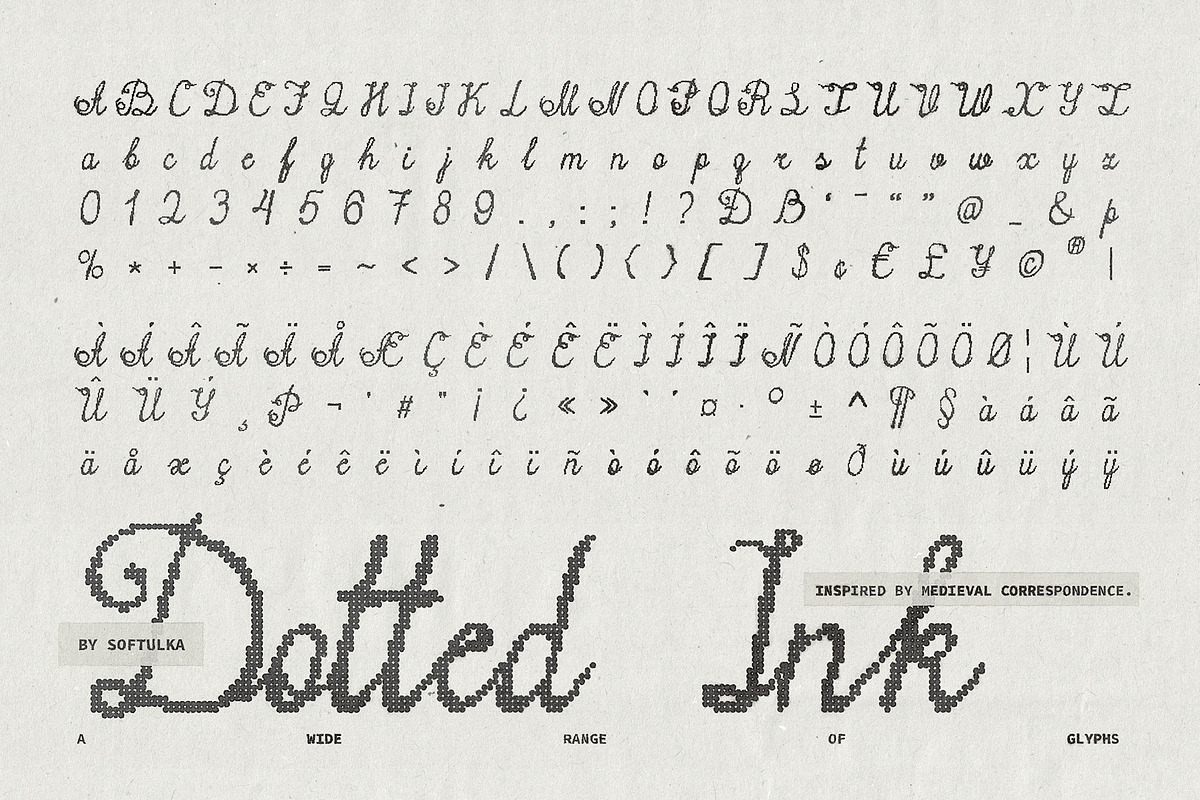 A B C D E F G H I J K L M N O P Q R S T U V W X Y Z
a b c d e f g h i j k l m n o p q r s t u v w x y z
0 1 2 3 4 5 6 7 8 9 . , : ; ! ? Ð B ‘ ¯ “ ” @ _ & þ
% * + - × ÷ = ~ < > / \ ( ) { } [ ] $ ¢ € £ ¥ © ® |
À Á Â Ã Ä Å Æ Ç È É Ê Ë Ì Í Î Ï Ñ Ò Ó Ô Õ Ö Ø ¦ Ù Ú
Û Ü Ý ¸ Þ ¬ ' # " ¡ ¿ « » ` ´ ¤ · º ± ^ ¶ § à á â ã
ä å æ ç è é ê ë ì í î ï ñ ò ó ô õ ö ø ð ù ú û ü ý ÿ
Dotted Ink
INSPIRED BY MEDIEVAL CORRESPONDENCE.
BY SOFTULKA
A WIDE RANGE OF GLYPHS